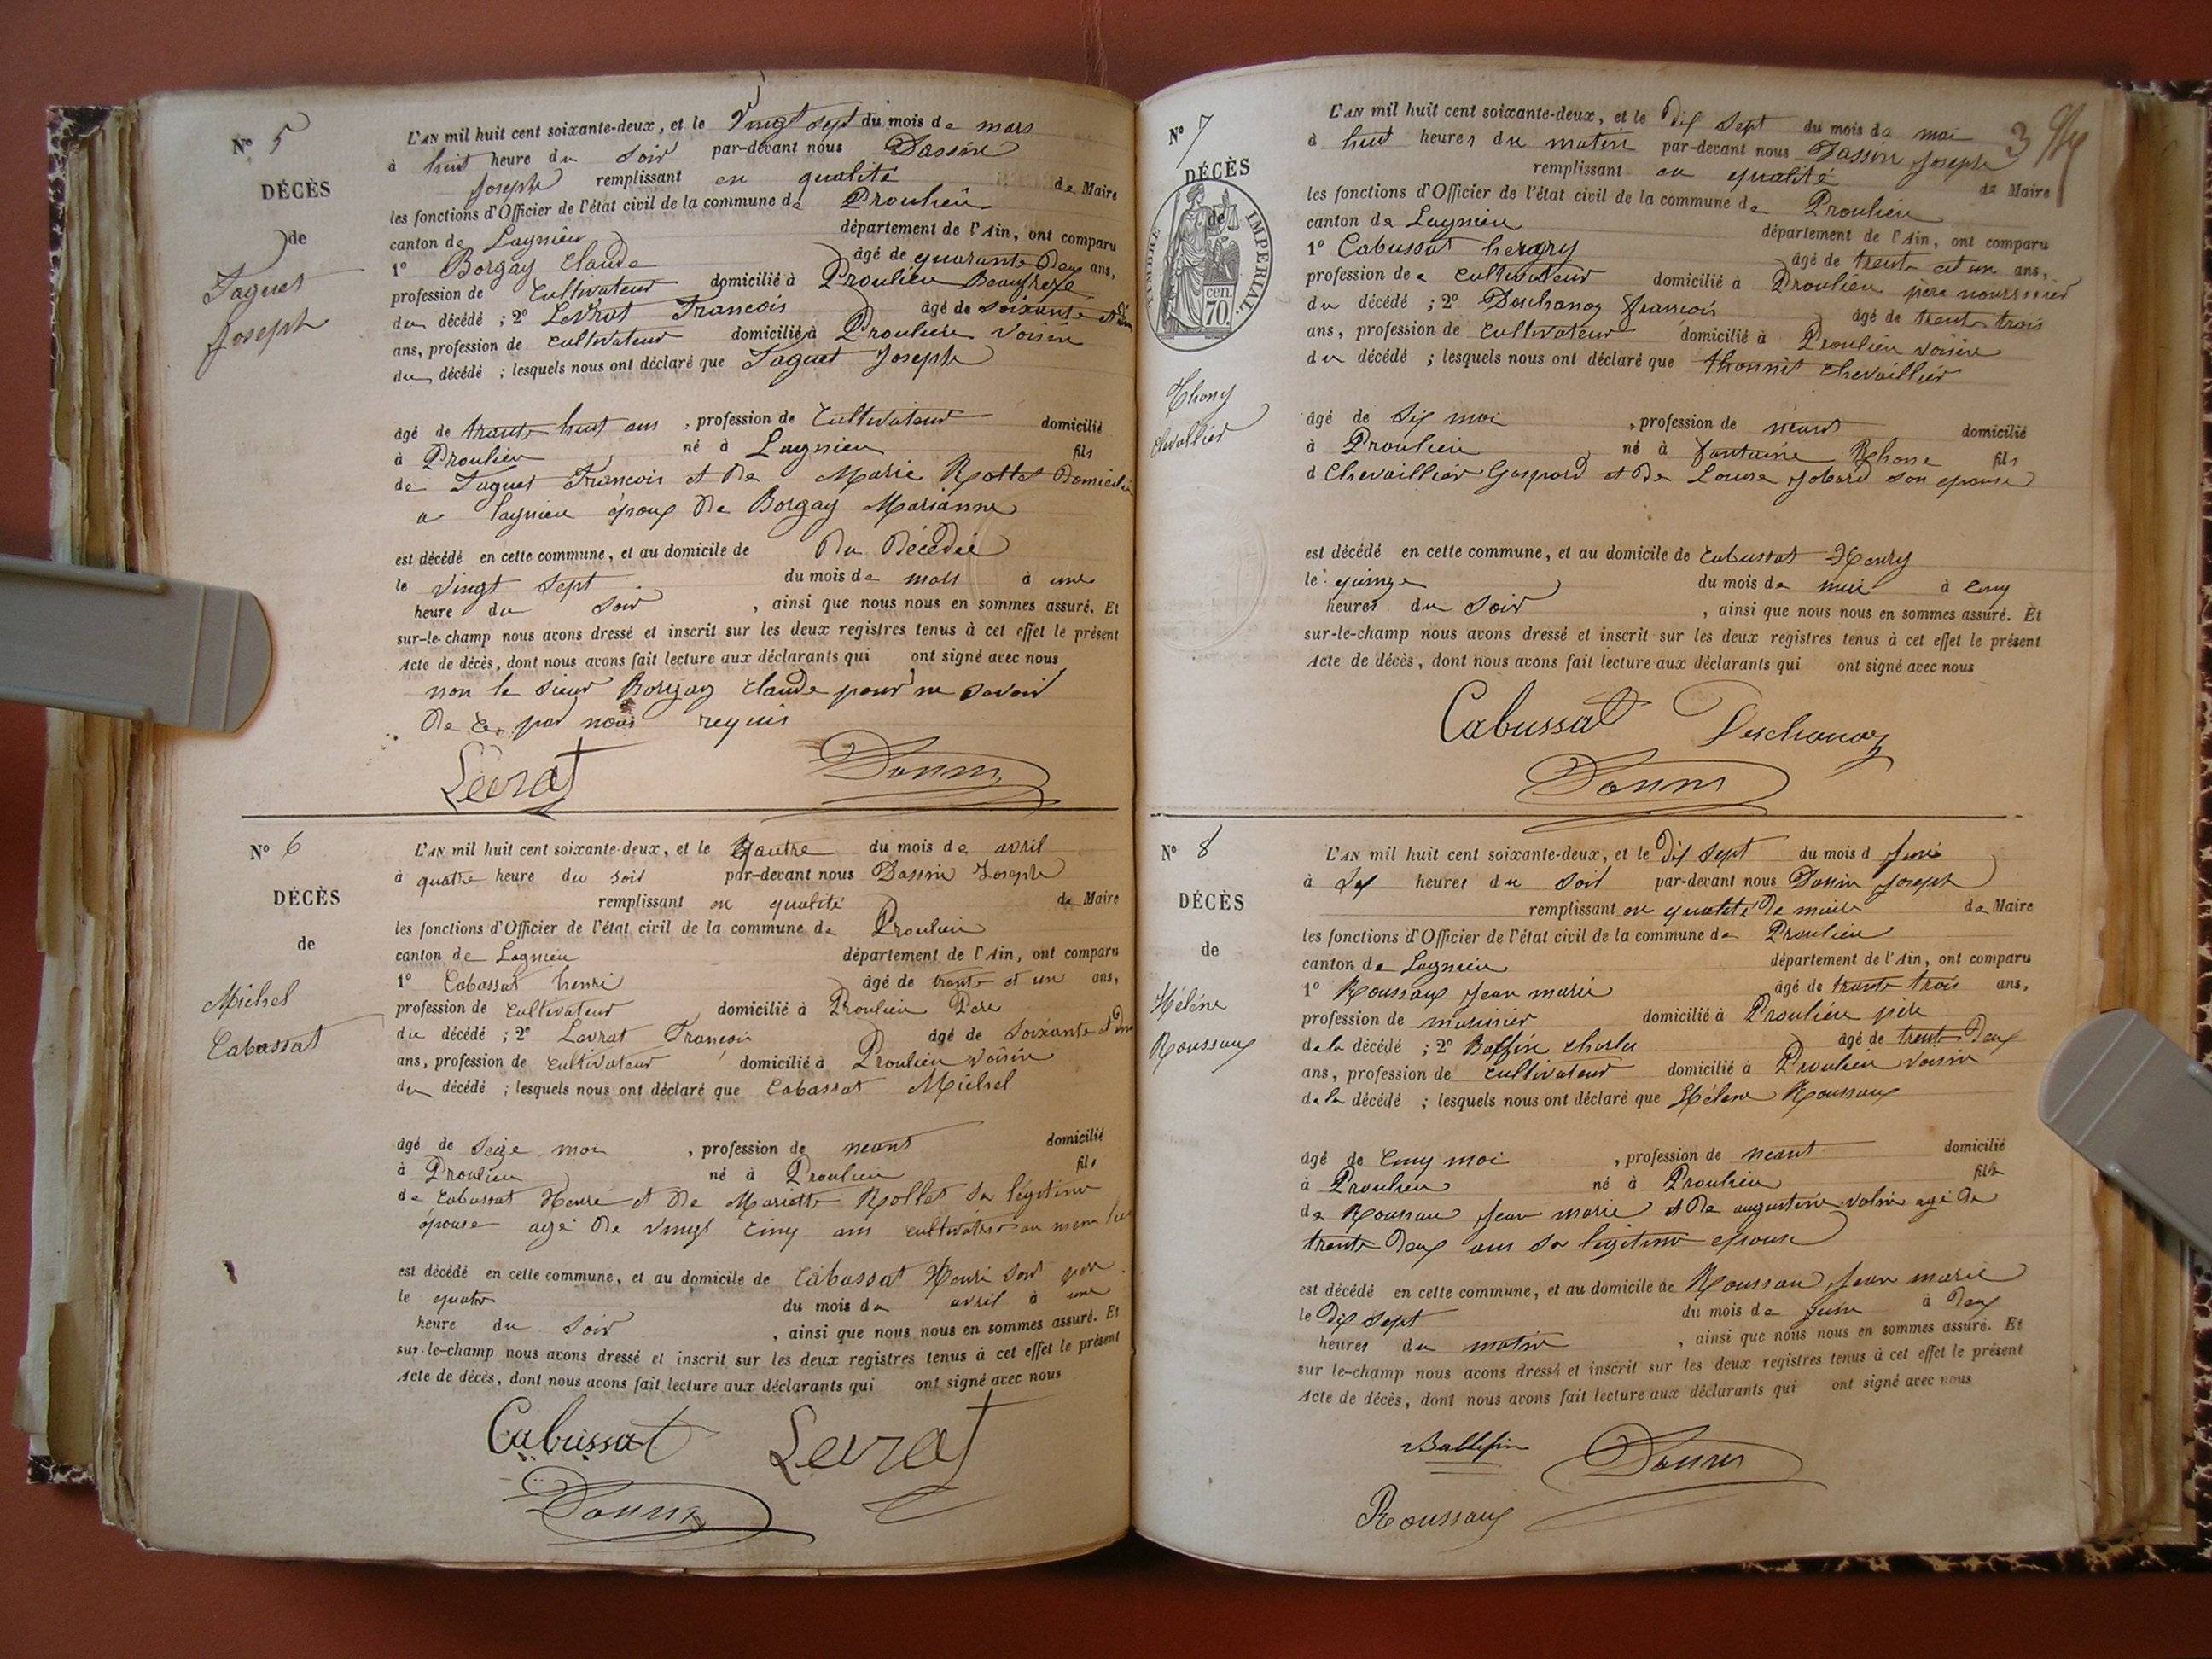 N° 5
DÉCÈS
de
Taguet
Joseph
L'AN mil huit cent soixante-deux, et le Vingt Sept du mois de mars
à huit heure du Soir par-devant nous Dassin
Joseph remplissant en qualité de Maire
les fonctions d'Officier de l'état civil de la commune de Proulieu
canton de Lagnieu département de l'Ain, ont comparu
1° Borgay Claude âgé de quarante Deux ans,
profession de Cultivateur domicilié à Proulieu Beaufrere
du décédé ; 2° Levrat Francois âgé de soixante et
ans, profession de cultivateur domicilié à Proulieu Voisin
du décédé ; lesquels nous ont déclaré que Taguet Joseph
âgé de trante huit ans , profession de Cultivateur domicilié
à Proulieu né à Lagnieu fils
de Taguet Francois et De Marie Rottet Domicilié
a lagnieu époux De Borgay Marianne
est décédé en cette commune, et au domicile de Du Décédé
le vingt Sept du mois de mars à une
heure du Soir , ainsi que nous nous en sommes assuré. Et
sur-le-champ nous avons dressé et inscrit sur les deux registres tenus à cet effet le présent
Acte de décès, dont nous avons fait lecture aux déclarants qui ont signé avec nous
non le Sieur Borgay Claude pour ne Savoir
De Ce par nous requis
Levrat
N° 6
DÉCÈS
de
Michel
Cabassat
L'AN mil huit cent soixante-deux, et le Quatre du mois de avril
à quatre heure du soir par-devant nous Dassin Joseph
remplissant en qualité de Maire
les fonctions d'Officier de l'état civil de la commune de Proulieu
canton de Lagnieu département de l'Ain, ont comparu
1° Cabassat henri âgé de trante et un ans,
profession de Cultivateur domicilié à Proulieu Pere
du décédé ; 2° Levrat Francois âgé de soixante et
ans, profession de cultivateur domicilié à Proulieu Voisin
du décédé ; lesquels nous ont déclaré que Cabassat Michel
âgé de Seize moi , profession de neant domicilié
à Proulieu né à Proulieu fils
de Cabassat Henri et De Mariette Rollet Sa légitime
épouse agé De Vingt Cinq ans cultivatrice au meme lieu
est décédé en cette commune, et au domicile de Cabassat Henri Son pere
le quatre du mois de avril à une
heure du Soir , ainsi que nous nous en sommes assuré. Et
sur-le-champ nous avons dressé et inscrit sur les deux registres tenus à cet effet le présent
Acte de décès, dont nous avons fait lecture aux déclarants qui ont signé avec nous
Cabussat Levrat
3
N° 7
DÉCÈS
de
TIMBRE IMPERIAL
70 cen.
Thony
Chevallier
L'AN mil huit cent soixante-deux, et le Dix Sept du mois de mai
à huit heures du matin par-devant nous Dassin Joseph
remplissant en qualité de Maire
les fonctions d'Officier de l'état civil de la commune de Proulieu
canton de Lagnieu département de l'Ain, ont comparu
1° Cabussat henry âgé de trente et un ans,
profession de Cultivateur domicilié à Proulieu père nourissier
du décédé ; 2° Deschanoz francois âgé de trente trois
ans, profession de Cultivateur domicilié à Proulieu voisin
du décédé ; lesquels nous ont déclaré que Chevaillier
âgé de Six moi , profession de néant domicilié
à Proulieu né à Fontaine Rhone fils
d Chevaillier Gaspard et De Louise Jobard son epouse
est décédé en cette commune, et au domicile de Cabussat Henry
le quinze du mois de mai à Cinq
heures du Soir , ainsi que nous nous en sommes assuré. Et
sur-le-champ nous avons dressé et inscrit sur les deux registres tenus à cet effet le présent
Acte de décès, dont nous avons fait lecture aux déclarants qui ont signé avec nous
Cabussat Deschanoz
N° 8
DÉCÈS
de
Hélène
Roussaux
L'AN mil huit cent soixante-deux, et le Dix Sept du mois d Juin
à Six heures du Soir par-devant nous Dassin Joseph
remplissant en qualité De maire de Maire
les fonctions d'Officier de l'état civil de la commune de Proulieu
canton de Lagnieu département de l'Ain, ont comparu
1° Roussaux Jean marie âgé de trante trois ans,
profession de marinier domicilié à Proulieu père
de la décédé ; 2° Charles âgé de trente Deux
ans, profession de cultivateur domicilié à Proulieu Voisin
de la décédé ; lesquels nous ont déclaré que Hélène Roussaux
âgé de Cinq moi , profession de neant domicilié
à Proulieu né à Proulieu fils
de Roussau Jean marie et De augustine agé De
trante Deux ans Sa légitime epouse
est décédé en cette commune, et au domicile de Roussau Jean marie
le Dix Sept du mois de Juin à Deux
heures du matin , ainsi que nous nous en sommes assuré. Et
sur-le-champ nous avons dressé et inscrit sur les deux registres tenus à cet effet le présent
Acte de décès, dont nous avons fait lecture aux déclarants qui ont signé avec nous
Roussaux